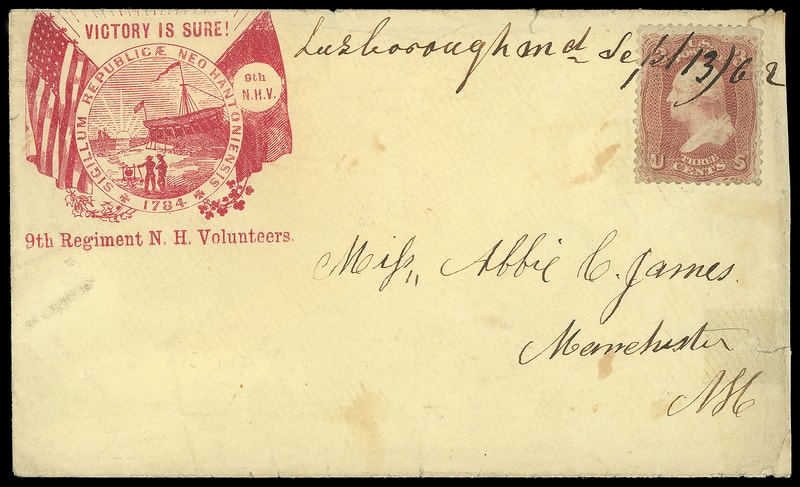 VICTORY IS SURE!
SIGILLUM REPUBLICÆ NEO HANTONIENSIS
1784
9th
N.H.V.
9th Regiment N. H. Volunteers.
Luxborough md Sept/13/62
U THREE S
CENTS
Miss, Abbie C. James.
Manchester
NH